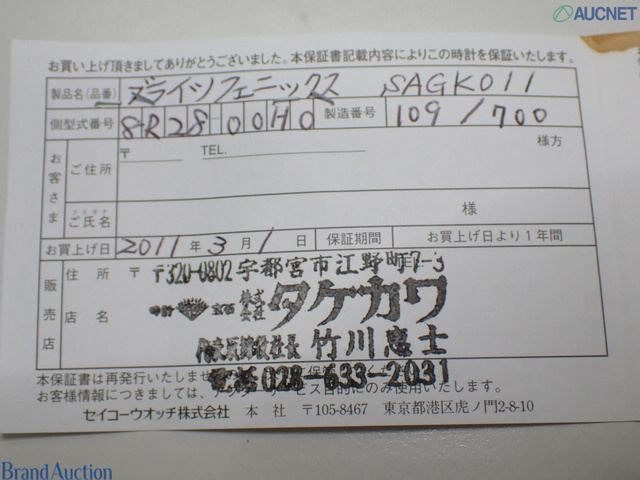 AUCNET
お買い上げ頂きましてありがとうございました。本保証書記載内容によりこの時計を保証いたします。
製品名(品番) ブライツフェニックス SAGK011
側型式番号 8R28-00H0 製造番号 109/700
お客さま ご住所 〒 TEL. 様方
フリガナ
ご氏名 様
お買上げ日 2011年3月1日 保証期間 お買上げ日より1年間
販売店 住所 〒 〒320-0802 宇都宮市江野町7-3
店名 時計 宝石 株式会社 タケカワ
代表取締役社長 竹川恵士
電話028-633-2031
本保証書は再発行いたしません
お客様情報につきましては、アフターサービス目的にのみ使用いたします。
セイコーウオッチ株式会社 本社 〒105-8467 東京都港区虎ノ門2-8-10
Brand Auction